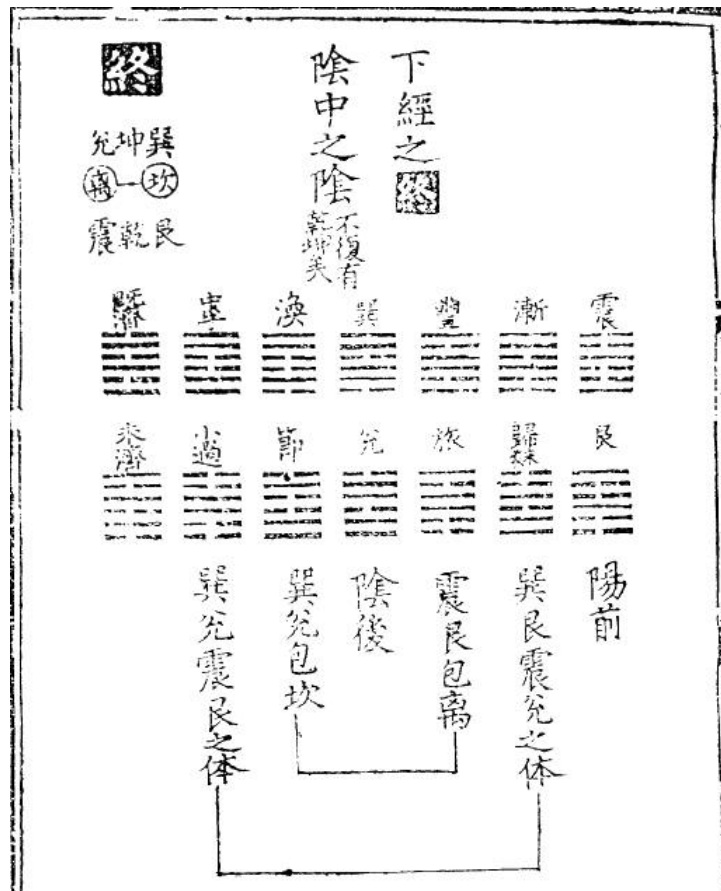 下經之終
陰中之陰
不復有
乾坤矣
終
巽坤兊
坎离
艮乾震
震
漸
豐
巽
渙
中孚
既濟
艮
歸妹
旅
兊
節
小過
未濟
陽前
巽艮震兊之体
震艮包离
陰後
巽兊包坎
巽兊震艮之体